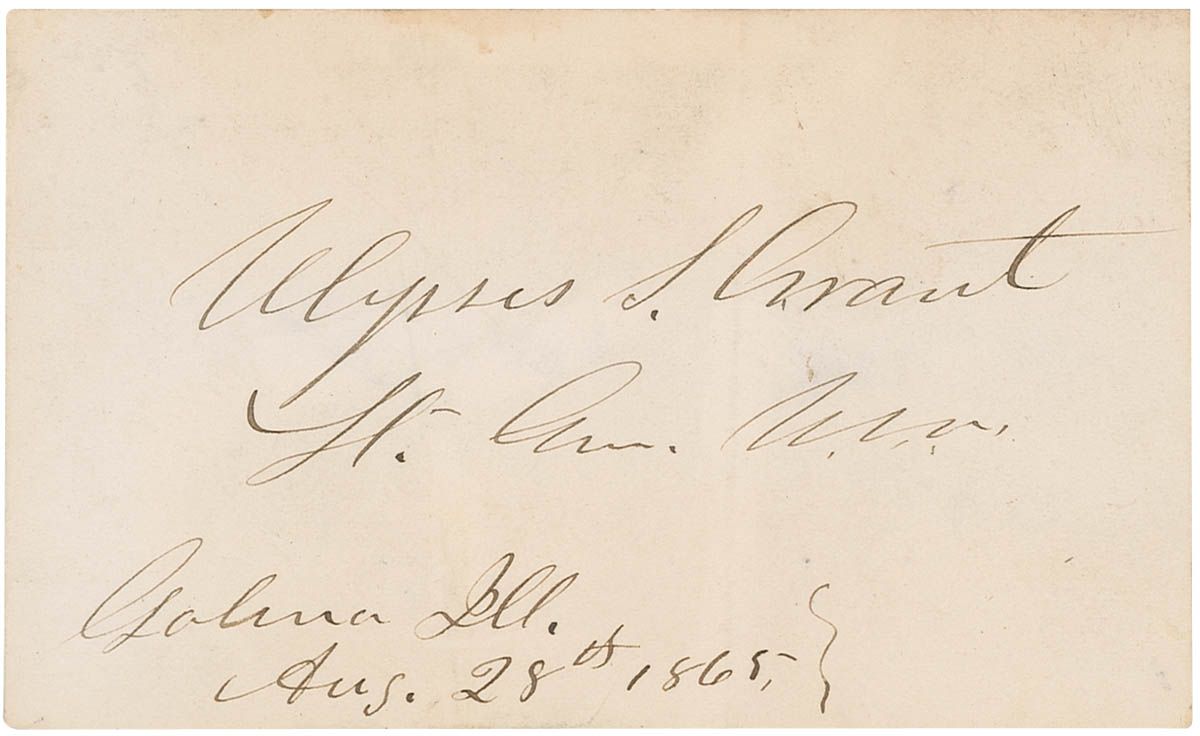 Ulysses S. Grant
Lt. Gen. U.S.A.
Galena Ill.
Aug. 28th 1865,